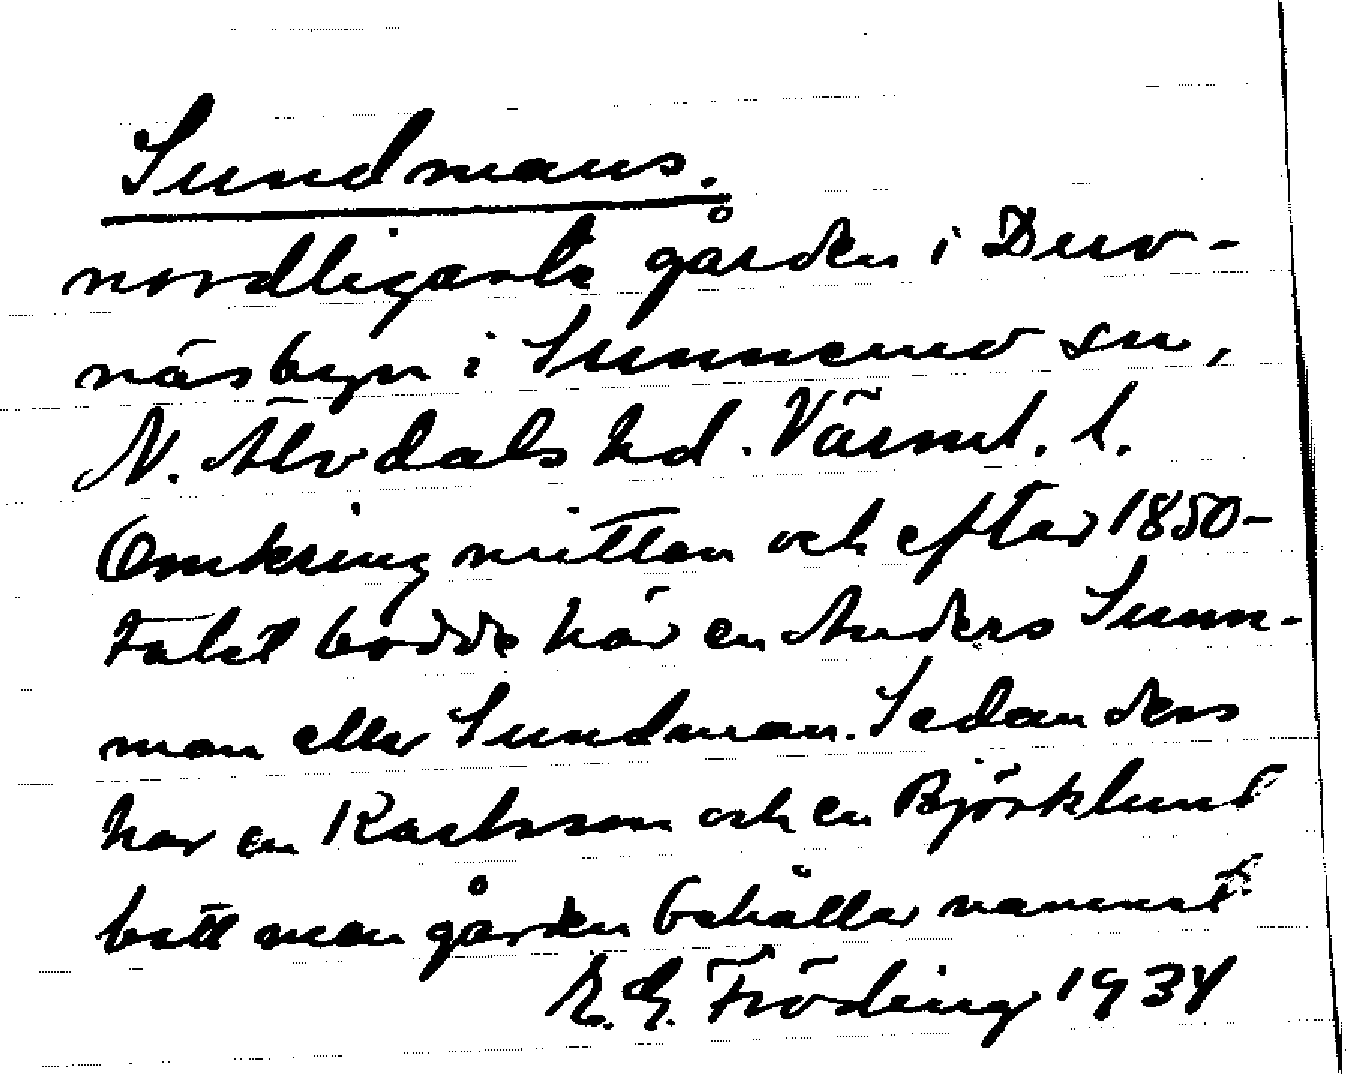 Sundmans.
nordligaste gården i Duv-
näsbyn i Sunnemo sn,
N. Älvdals hd. Värml. l.
Omkring mitten och efter 1850-
talet bodde här en Anders Sunn-
man eller Sundman. Sedan dess
har en Karlsson och en Björklund
bott men gården behåller namnet
E. G. Fröding 1934